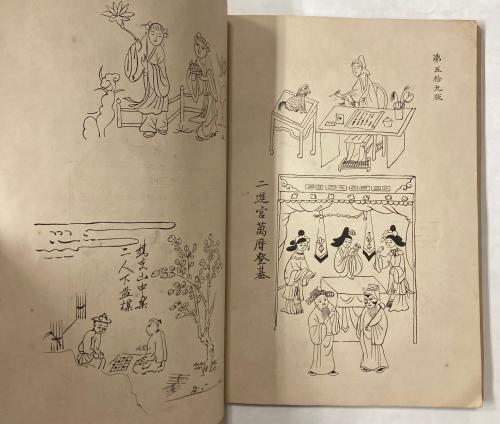 第五拾九版
二進宮萬曆登基
京山中樂
二人下盘棋